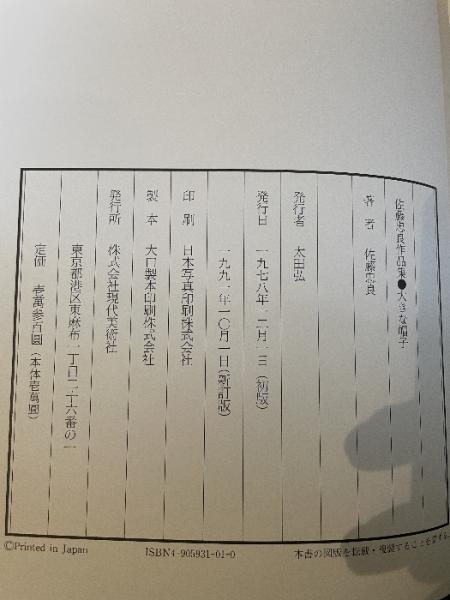 佐藤忠良作品集●大きな帽子
著者 佐藤忠良
発行者 太田弘
発行日 一九七八年十二月一日(初版)
一九九一年一〇月一日(新訂版)
印刷 日本写真印刷株式会社
製本 大口製本印刷株式会社
発行所 株式会社現代美術社
東京都港区東麻布一丁目二十六番の一
定価 壱萬参百圓(本体壱萬圓)
©Printed in Japan
ISBN4-905931-01-0
本書の図版を転載・複製することを